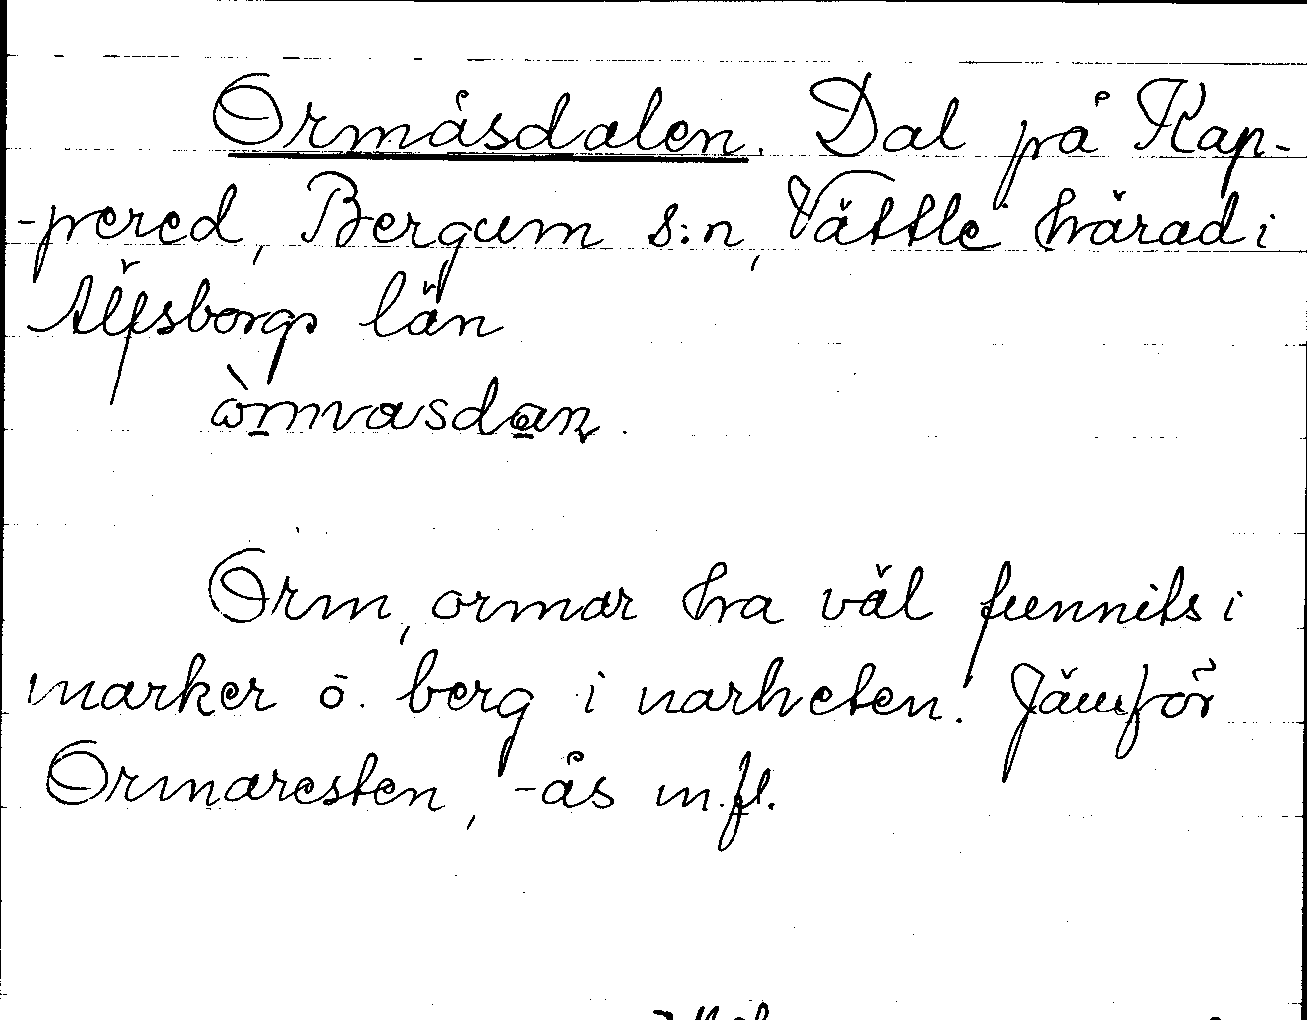 Ormåsdalen. Dal på Kap-
-pered, Bergum s:n, Vättle härad i
Älfsborgs län
òrmasdan.
Orm, ormar ha väl funnits i
marker o. berg i narheten. Jämför
Ormaresten, -ås m.fl.